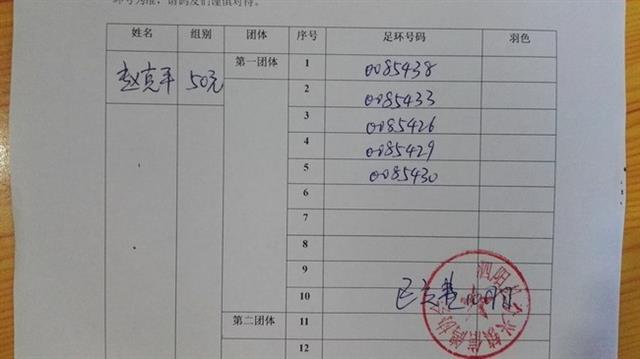 环号为准，请鸽友们谨慎对待。
姓名 组别 团体 序号 足环号码 羽色
赵克平 50元 第一团体 1 0085438
2 0085433
3 0085426
4 0085429
5 0085430
6
7
8
9
10 已交费
第二团体 11
12